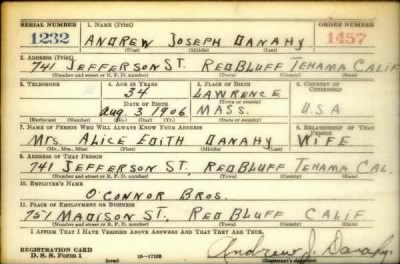 SERIAL NUMBER 1. NAME (Print) ORDER NUMBER
1232 ANDREW JOSEPH DANAHY 1457
(First) (Middle) (Last)
2. ADDRESS (Print)
741 JEFFERSON ST. RED BLUFF TEHAMA CALIF
(Number and street or R. F. D. number) (Town) (County) (State)
3. TELEPHONE 4. AGE IN YEARS 5. PLACE OF BIRTH 6. COUNTRY OF CITIZENSHIP
34 LAWRENCE
DATE OF BIRTH (Town or county)
Aug. 3 1906 MASS. U.S.A
(Exchange) (Number) (Mo.) (Day) (Yr.) (State or country)
7. NAME OF PERSON WHO WILL ALWAYS KNOW YOUR ADDRESS 8. RELATIONSHIP OF THAT PERSON
Mrs. ALICE EDITH DANAHY WIFE
(Mr., Mrs., Miss) (First) (Middle) (Last)
9. ADDRESS OF THAT PERSON
741 JEFFERSON ST, RED BLUFF TEHAMA CAL.
(Number and street or R. F. D. number) (Town) (County) (State)
10. EMPLOYER'S NAME
O'CONNOR BROS.
11. PLACE OF EMPLOYMENT OR BUSINESS
751 MADISON ST., RED BLUFF CALIF
(Number and street or R. F. D. number) (Town) (County) (State)
I AFFIRM THAT I HAVE VERIFIED ABOVE ANSWERS AND THAT THEY ARE TRUE.
REGISTRATION CARD
D. S. S. Form 1 (over) 16—17105 Andrew J. Danahy
(Registrant's signature)